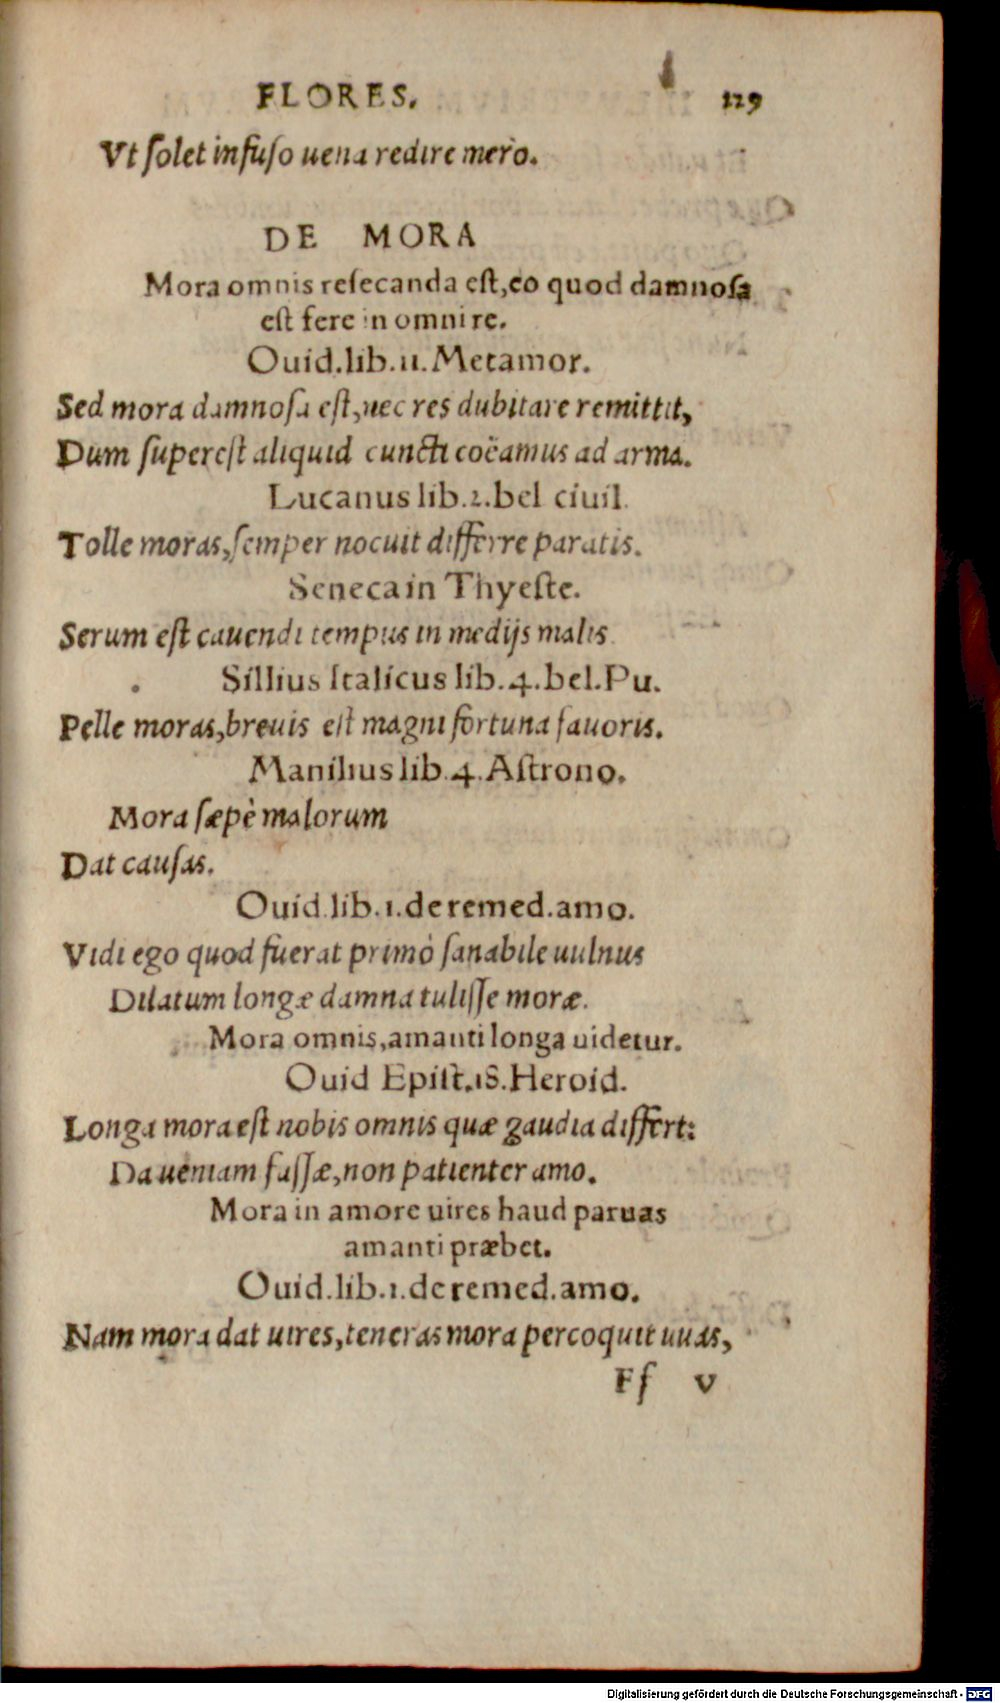 FLORES. 129
Vt ſolet infuſo uena redire mero.
DE MORA
Mora omnis reſecanda eſt, eo quod damnoſa
eſt fere in omni re.
Ouid. lib. 11. Metamor.
Sed mora damnoſa eſt, nec res dubitare remittit,
Dum ſupereſt aliquid cuncti coëamus ad arma.
Lucanus lib. 2. bel ciuil.
Tolle moras, ſemper nocuit differre paratis.
Seneca in Thyeſte.
Serum eſt cauendi tempus in medijs malis.
Sillius Italicus lib. 4. bel. Pu.
Pelle moras, breuis eſt magni fortuna fauoris.
Manilius lib. 4. Aſtrono.
Mora ſæpè malorum
Dat cauſas.
Ouid. lib. 1. de remed. amo.
Vidi ego quod fuerat primò ſanabile uulnus
Dilatum longæ damna tuliſſe moræ.
Mora omnis, amanti longa uidetur.
Ouid Epiſt. 18. Heroid.
Longa mora eſt nobis omnis quæ gaudia differt:
Da ueniam faſſæ, non patienter amo.
Mora in amore uires haud paruas
amanti præbet.
Ouid. lib. 1. de remed. amo.
Nam mora dat uires, teneras mora percoquit uuas,
Ff v
Digitalisierung gefördert durch die Deutsche Forschungsgemeinschaft - DFG